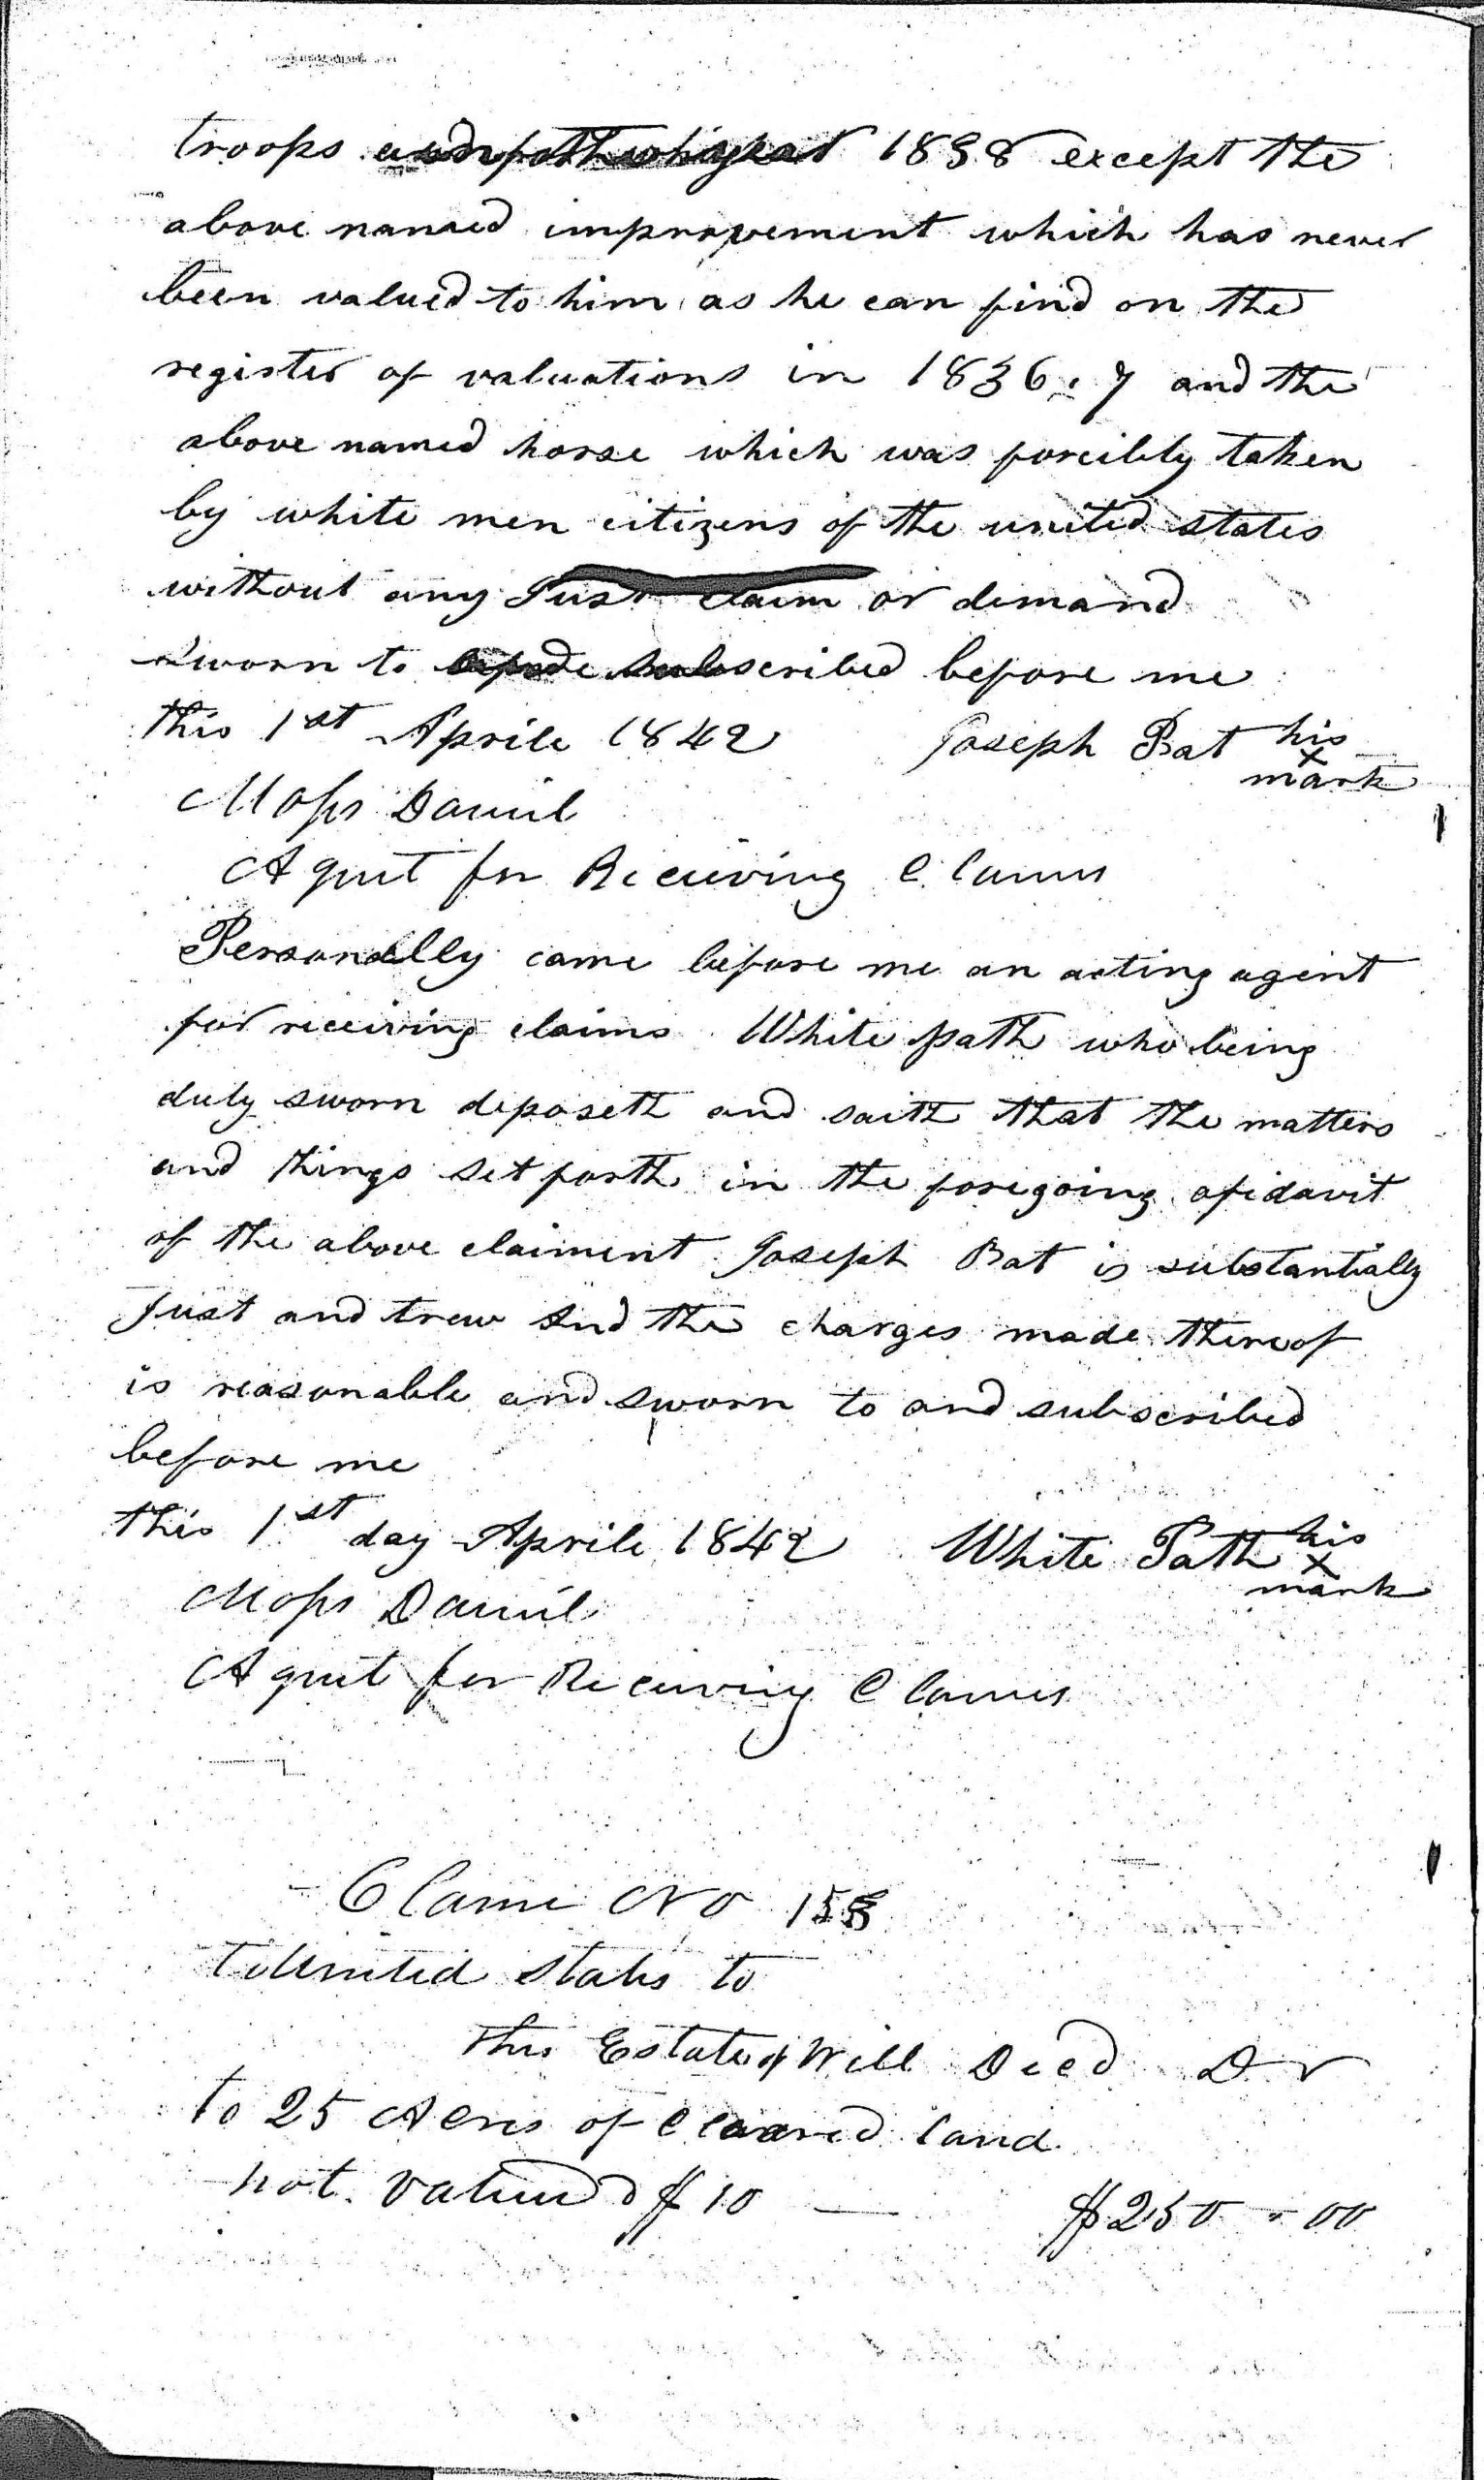 troops 1838 except the
above named improvement which has never
been valued to him as he can find on the
register of valuations in 1836.7 and the
above named horse which was forcibly taken
by white men citizens of the united states
without any Just claim or demand
sworn to subscribed before me
this 1st Aprile 1842 Joseph Bat his
x
mark
Moss Daniel
Agent for Receiving Claims
Personally came before me an acting agent
for receiving claims White path who being
duly sworn deposeth and saith that the matters
and things set forth in the foregoing afidavit
of the above claiment Joseph Bat is substantially
Just and trew and the charges made thereof
is reasonable and sworn to and subscribed
before me
this 1st day Aprile 1842 White Path his
x
mark
Moss Daniel
Agent for Receiving Claims
Claim No 155
United States to
this Estate of Will Decd Dr
to 25 Acres of Cleared land
not valued $10 — $250 - 00